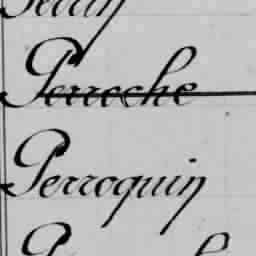 Perroche
Perroquin